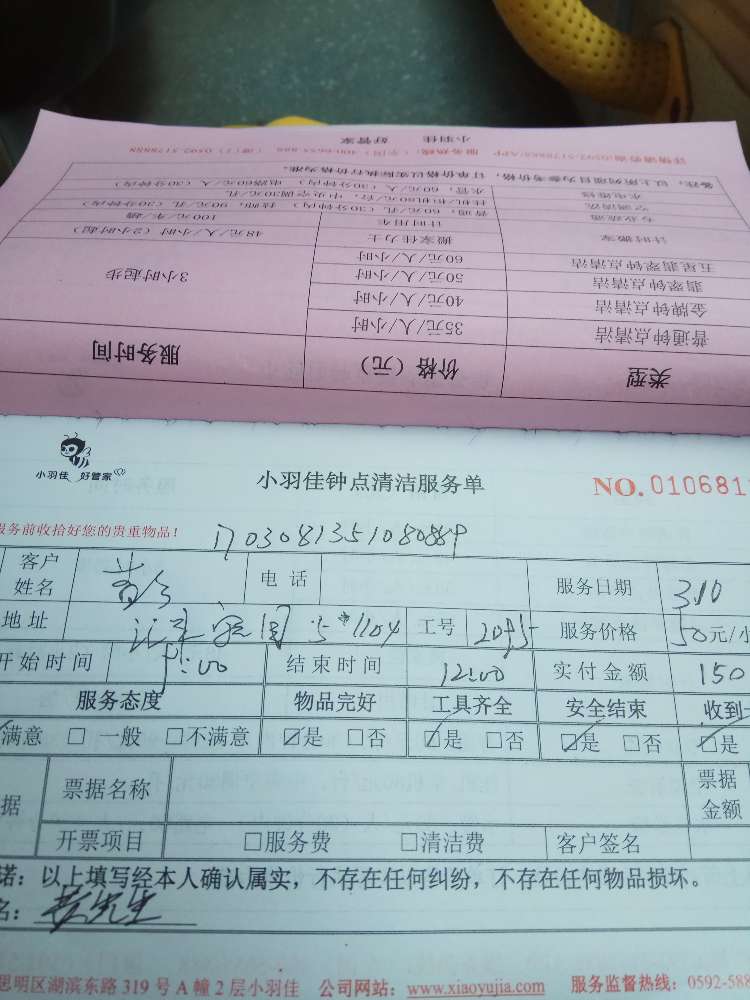 类型 价格（元） 服务时间
普通钟点清洁 35元/人/小时 3小时起步
金牌钟点清洁 40元/人/小时
翡翠钟点清洁 50元/人/小时
五星翡翠钟点清洁 60元/人/小时
计时搬家 搬家佳力士 48元/人/小时（2小时起）
计时用车 100元/车/趟
备注：以上所列项目为参考价格，订单价格以实际执行价格为准。
小羽佳 好管家
小羽佳 好管家
小羽佳钟点清洁服务单
NO. 010681
服务前收拾好您的贵重物品！
170308135108088
客户姓名 电话 服务日期 3.10
地址 5#1104 工号 服务价格 50元/小
开始时间 :00 结束时间 12:00 实付金额 150
服务态度 物品完好 工具齐全 安全结束 收到
满意 □ 一般 □不满意 ☑是 □否 ☑是 □否 ☑是 □否 ☑是
据 票据名称 票据金额
开票项目 □服务费 □清洁费 客户签名
诺：以上填写经本人确认属实，不存在任何纠纷，不存在任何物品损坏。
名：
思明区湖滨东路 319 号 A 幢 2 层小羽佳 公司网站：www.xiaoyujia.com 服务监督热线：0592-588